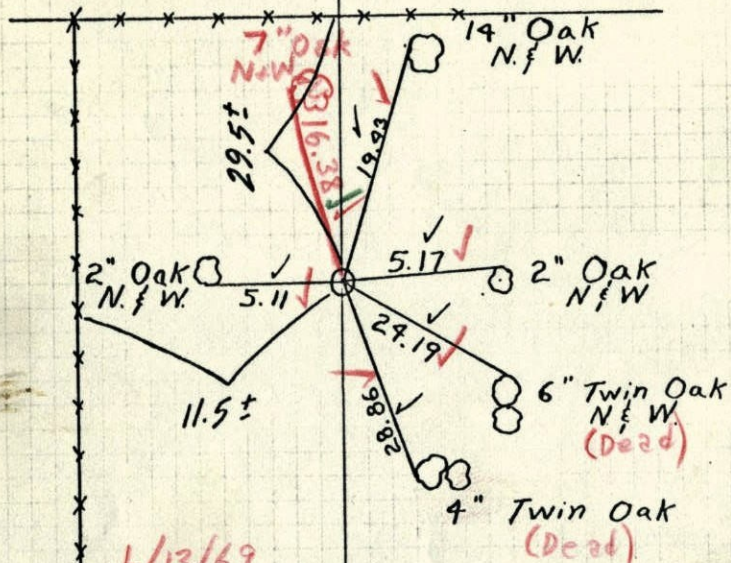 14" Oak
N. & W.
7" Oak
N & W
29.5±
16.38
19.93
2" Oak
N. & W.
5.11
5.17
2" Oak
N & W
24.19
6" Twin Oak
N & W.
(Dead)
11.5±
28.86
4" Twin Oak
(Dead)
1/13/69